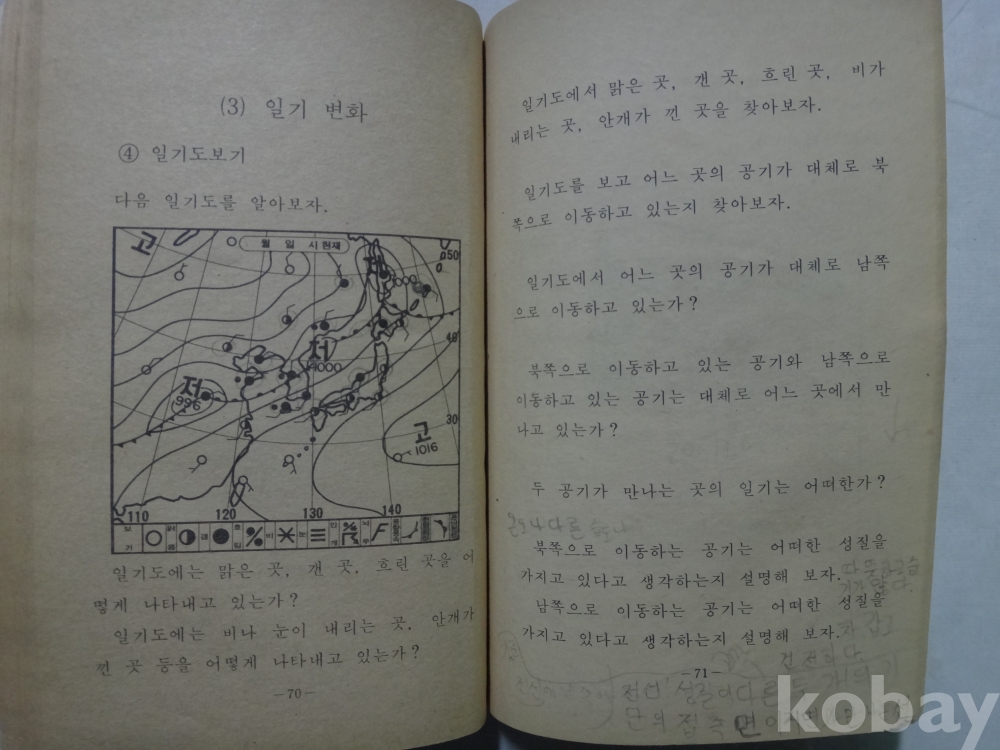 (3) 일기 변화
④ 일기도보기
다음 일기도를 알아보자.
고
월 일 시 현재
50
저
40
저
1000
저
996
30
고
1016
110 120 130 140
보기
맑음
갬
흐림
비
눈
안개
일기도에는 맑은 곳, 갠 곳, 흐린 곳을 어
떻게 나타내고 있는가?
일기도에는 비나 눈이 내리는 곳, 안개가
낀 곳 등을 어떻게 나타내고 있는가?
—70—
일기도에서 맑은 곳, 갠 곳, 흐린 곳, 비가
내리는 곳, 안개가 낀 곳을 찾아보자.
일기도를 보고 어느 곳의 공기가 대체로 북
쪽으로 이동하고 있는지 찾아보자.
일기도에서 어느 곳의 공기가 대체로 남쪽
으로 이동하고 있는가?
북쪽으로 이동하고 있는 공기와 남쪽으로
이동하고 있는 공기는 대체로 어느 곳에서 만
나고 있는가?
두 공기가 만나는 곳의 일기는 어떠한가?
북쪽으로 이동하는 공기는 어떠한 성질을
가지고 있다고 생각하는지 설명해 보자.
남쪽으로 이동하는 공기는 어떠한 성질을
가지고 있다고 생각하는지 설명해 보자.
차갑고
건조하다.
—71—
전선 성질이 다른 두
kobay